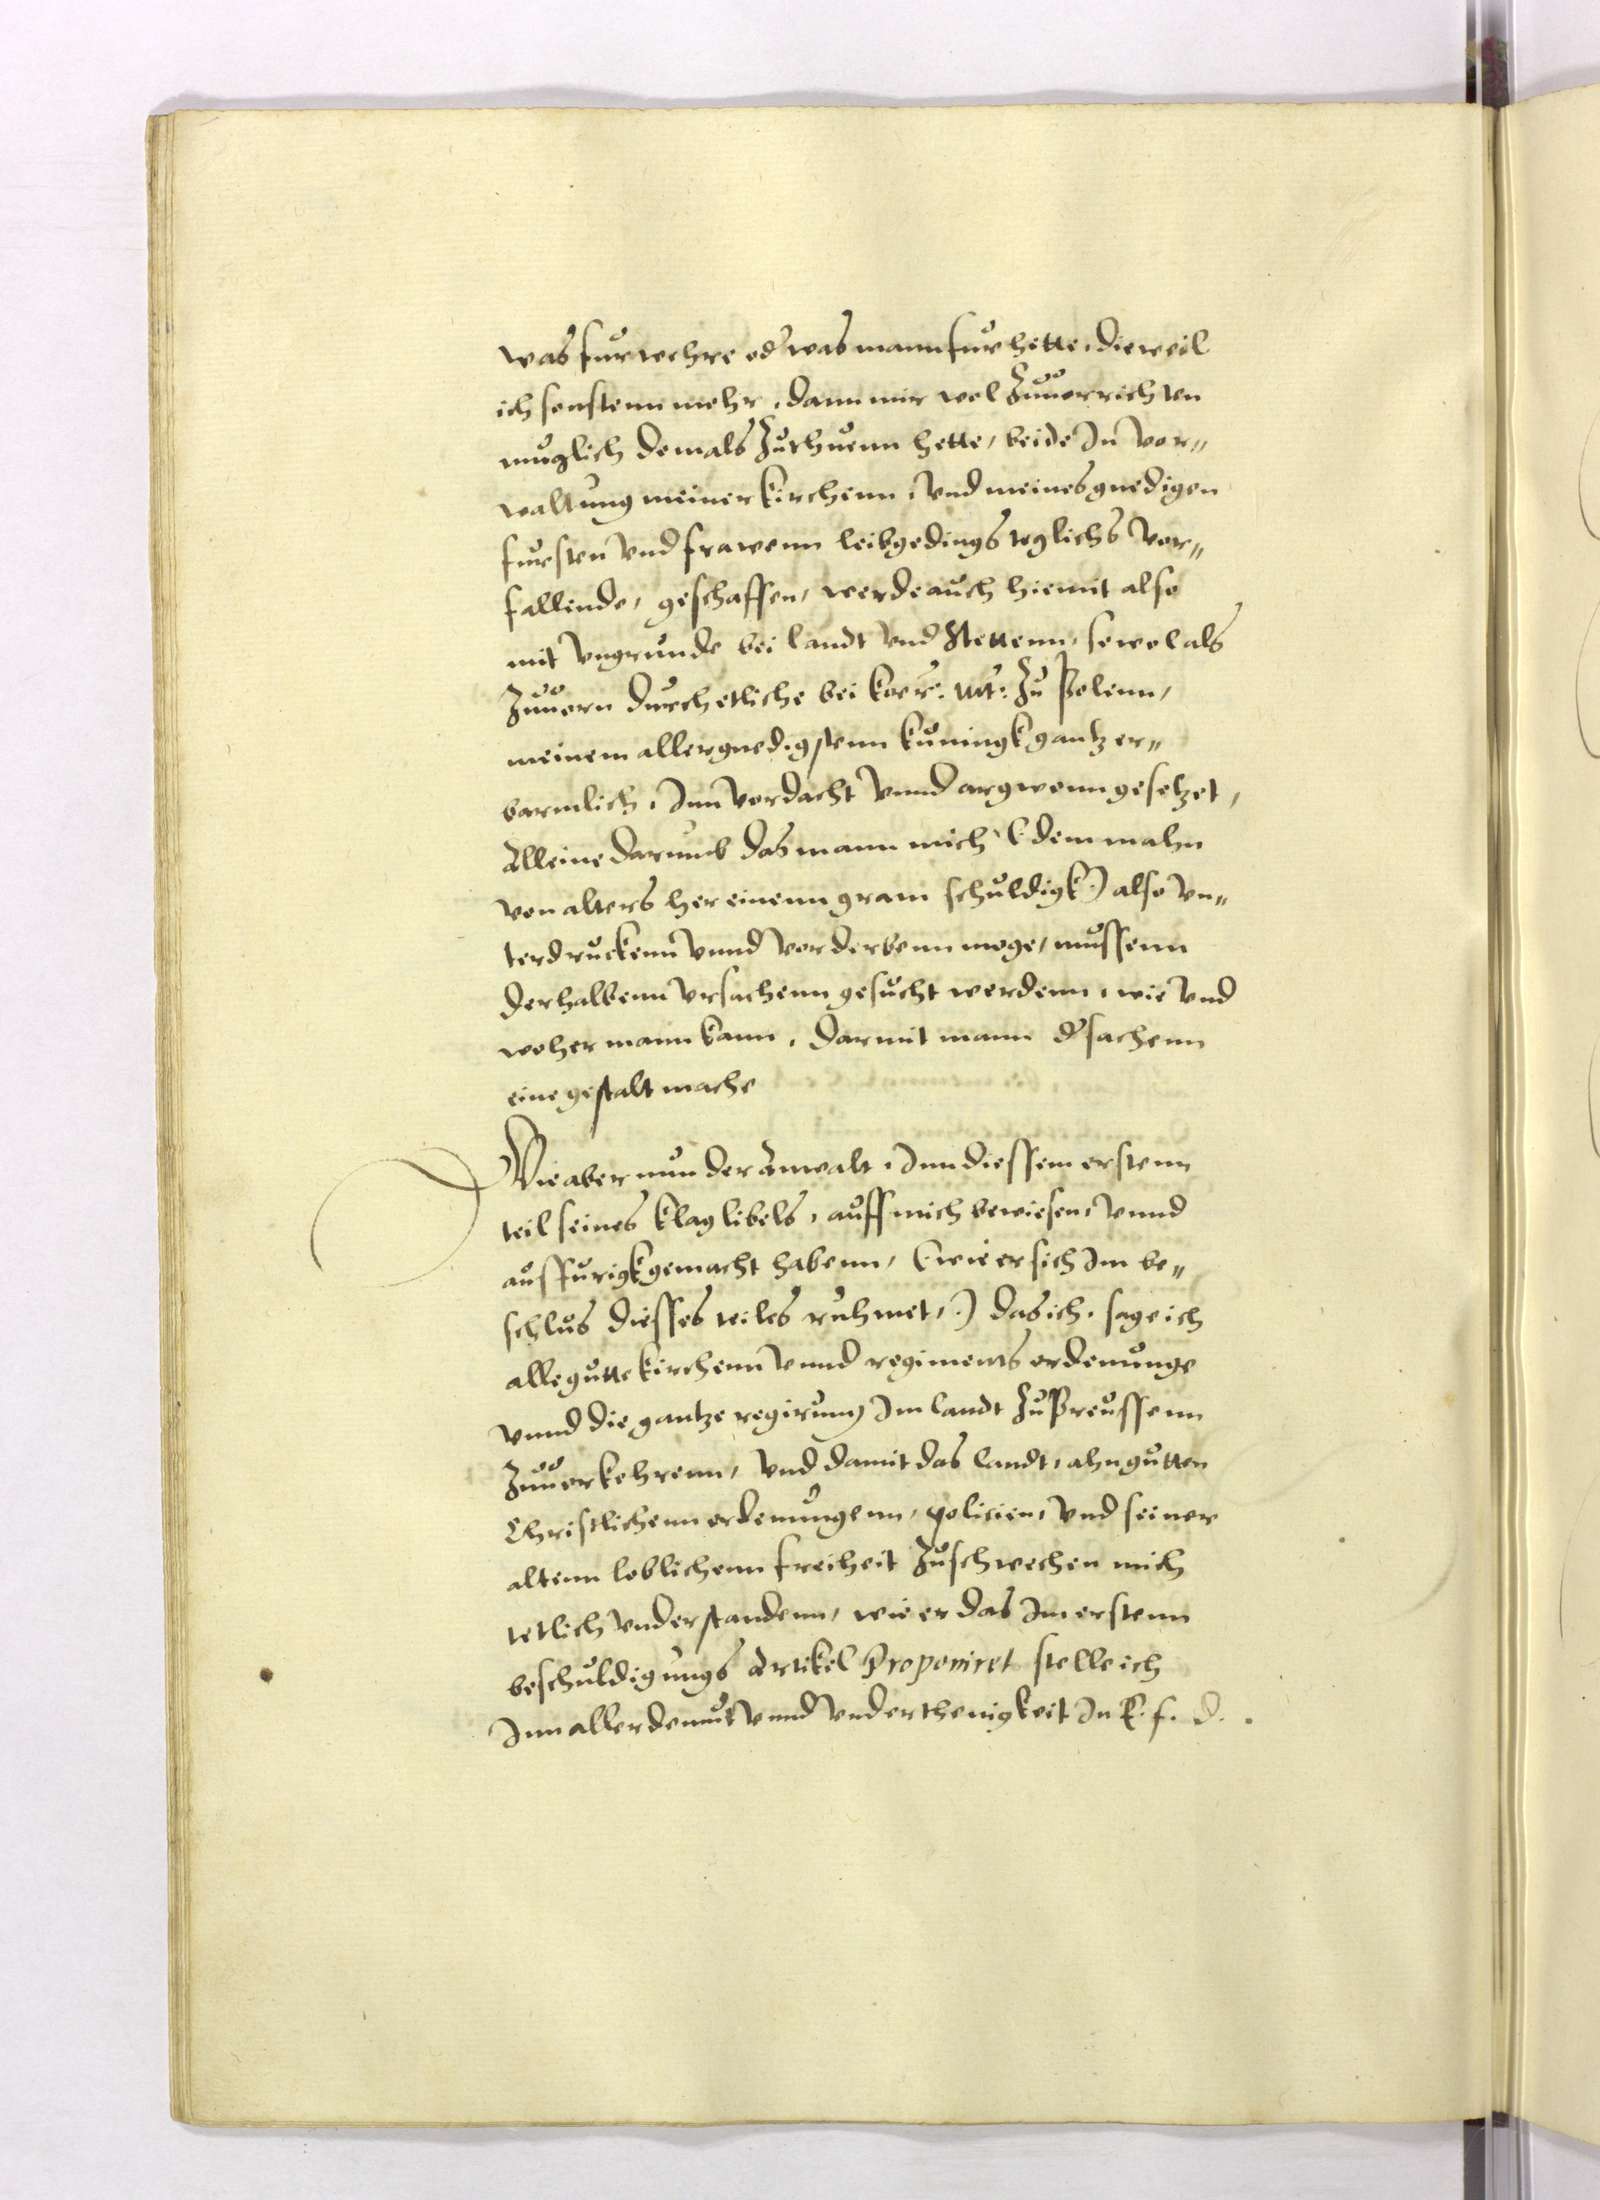 was fur wehre od(er) was mann fur hette, dieweil
ich sonstenn mehr, dann mir wol zuuorrichten
muglich domals zuthuenn hette, beide In vor„
waltung meiner kirchenn, vnd meines gnedigen
fursten vnd frawenn leibgedings teglichs vor„
fallende, geschafften, werde auch hiemit also
mit vngrunde bei landt vnd Stettenn, sowol als
zuuorn durch etliche bei koer: Mt: zu Polenn,
meinem allergnedigstenn kuningk gantz er„
barmlich, Inn vordacht vnnd argwenn gesetzet,
Alleine darumb das mann mich (: dem mahn
von alters her einenn gram schuldigk :) also vn„
terdruckenn vnnd vorderbenn moge, mussenn
derhalbenn vrsachenn gesucht werdenn, wie vnd
woher mann kann, darmit mann d(er) sachenn
eine gestalt mache
Wie aber nun der Anwalt, Inn diessem erstenn
teil seines klaglibels, auff mich bewiesen, vnnd
ausfurigk gemacht habenn, (: wie er sich Im be„
schlus diesses teiles ruhmet, :) das ich, sage ich
alle gutte kirchenn vnnd regiments ordenunge
vnnd die gantze regirung Im landt zu Preussenn
zuuorkehrenn, vnd damit das landt, ahn gutten
Christlichenn ordenungenn, policien, vnd seiner
altenn loblichenn freiheit zuschwechen mich
tetlich vnderstandenn, wie er das Im erstenn
beschuldigungs Artikel Proponiret stelle ich
Inn aller demut vnnd vnderthenigkeit In E. f. d.